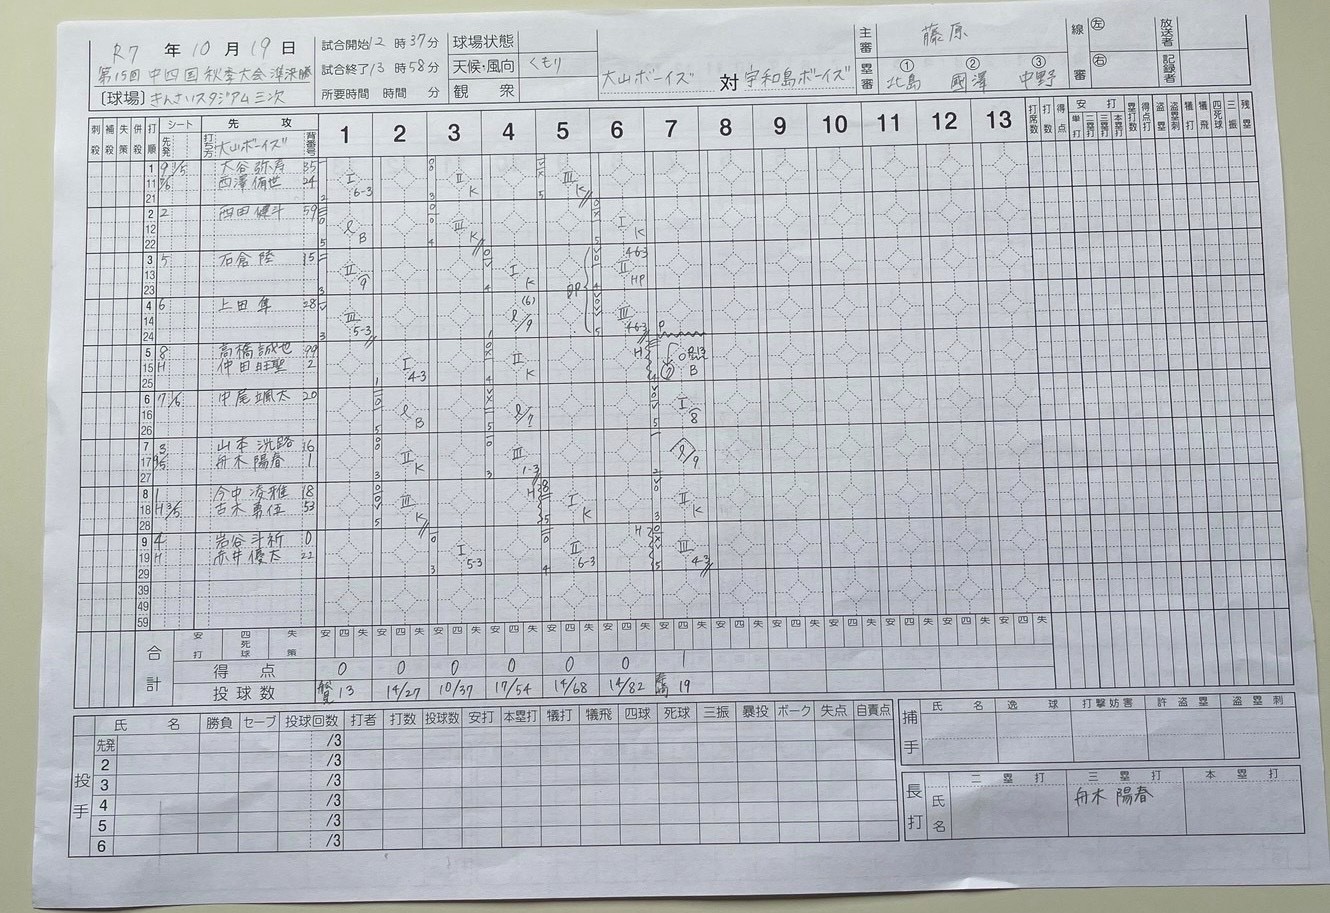 R7 年 10 月 19 日
第15回 中四国秋季大会 準決勝
〔球場〕きんさいスタジアム三次
試合開始12時37分
試合終了13時58分
所要時間 時間 分
球場状態
天候・風向 くもり
観衆
大山ボーイズ 対 宇和島ボーイズ
主審 藤原
塁審 ① 北島 ② 國澤 ③ 中野
線審 左 右
放送者
記録者
刺殺 補殺 失策 併殺 打順 シート 先発 先攻 打ち方 大山ボーイズ 背番号 1 2 3 4 5 6 7 8 9 10 11 12 13 打席数 打数 得点 安打 単打 二塁打 三塁打 本塁打 塁打数 得点打 盗塁 盗塁刺 犠打 犠飛 四死球 三振 残塁
1 9 大谷 弥寿 35 I 6-3 II K III K
11 西澤 侑世 24
21
2 2 西田 健斗 59 B III K I K
12
22
3 5 石倉 陸 15 II 9 I K II HP 4-6-3
13
23
4 6 上田 隼 28 III 5-3 (6) 9 III 4-6-3 DP
14
24
5 8 高橋 誠也 99 I 4-3 II K B
15 H 仲田 旺聖 2
25
6 中尾 颯太 20 B 7 I 8
16
26
7 3 山本 洸路 16 II K III 1-3 9
17 舟木 陽春 1
27
8 1 今中 凌雅 18 III K I K II K
18 H 古木 勇伍 53
28
9 4 岩谷 斗祈 0 I 5-3 II 6-3 III 4-3
19 H 赤井 優太 22
29
39
49
59
合計 安打 四死球 失策 安 四 失 安 四 失 安 四 失 安 四 失 安 四 失 安 四 失 安 四 失 安 四 失 安 四 失 安 四 失 安 四 失 安 四 失 安 四 失
得点 0 0 0 0 0 0 1
投球数 13 14/27 10/37 17/54 14/68 14/82 19
投手 氏名 勝負 セーブ 投球回数 打者 打数 投球数 安打 本塁打 犠打 犠飛 四球 死球 三振 暴投 ボーク 失点 自責点
先発 /3
2 /3
3 /3
4 /3
5 /3
6 /3
捕手 氏名 逸球 打撃妨害 許盗塁 盗塁刺
長打 氏名 二塁打 三塁打 本塁打
舟木 陽春